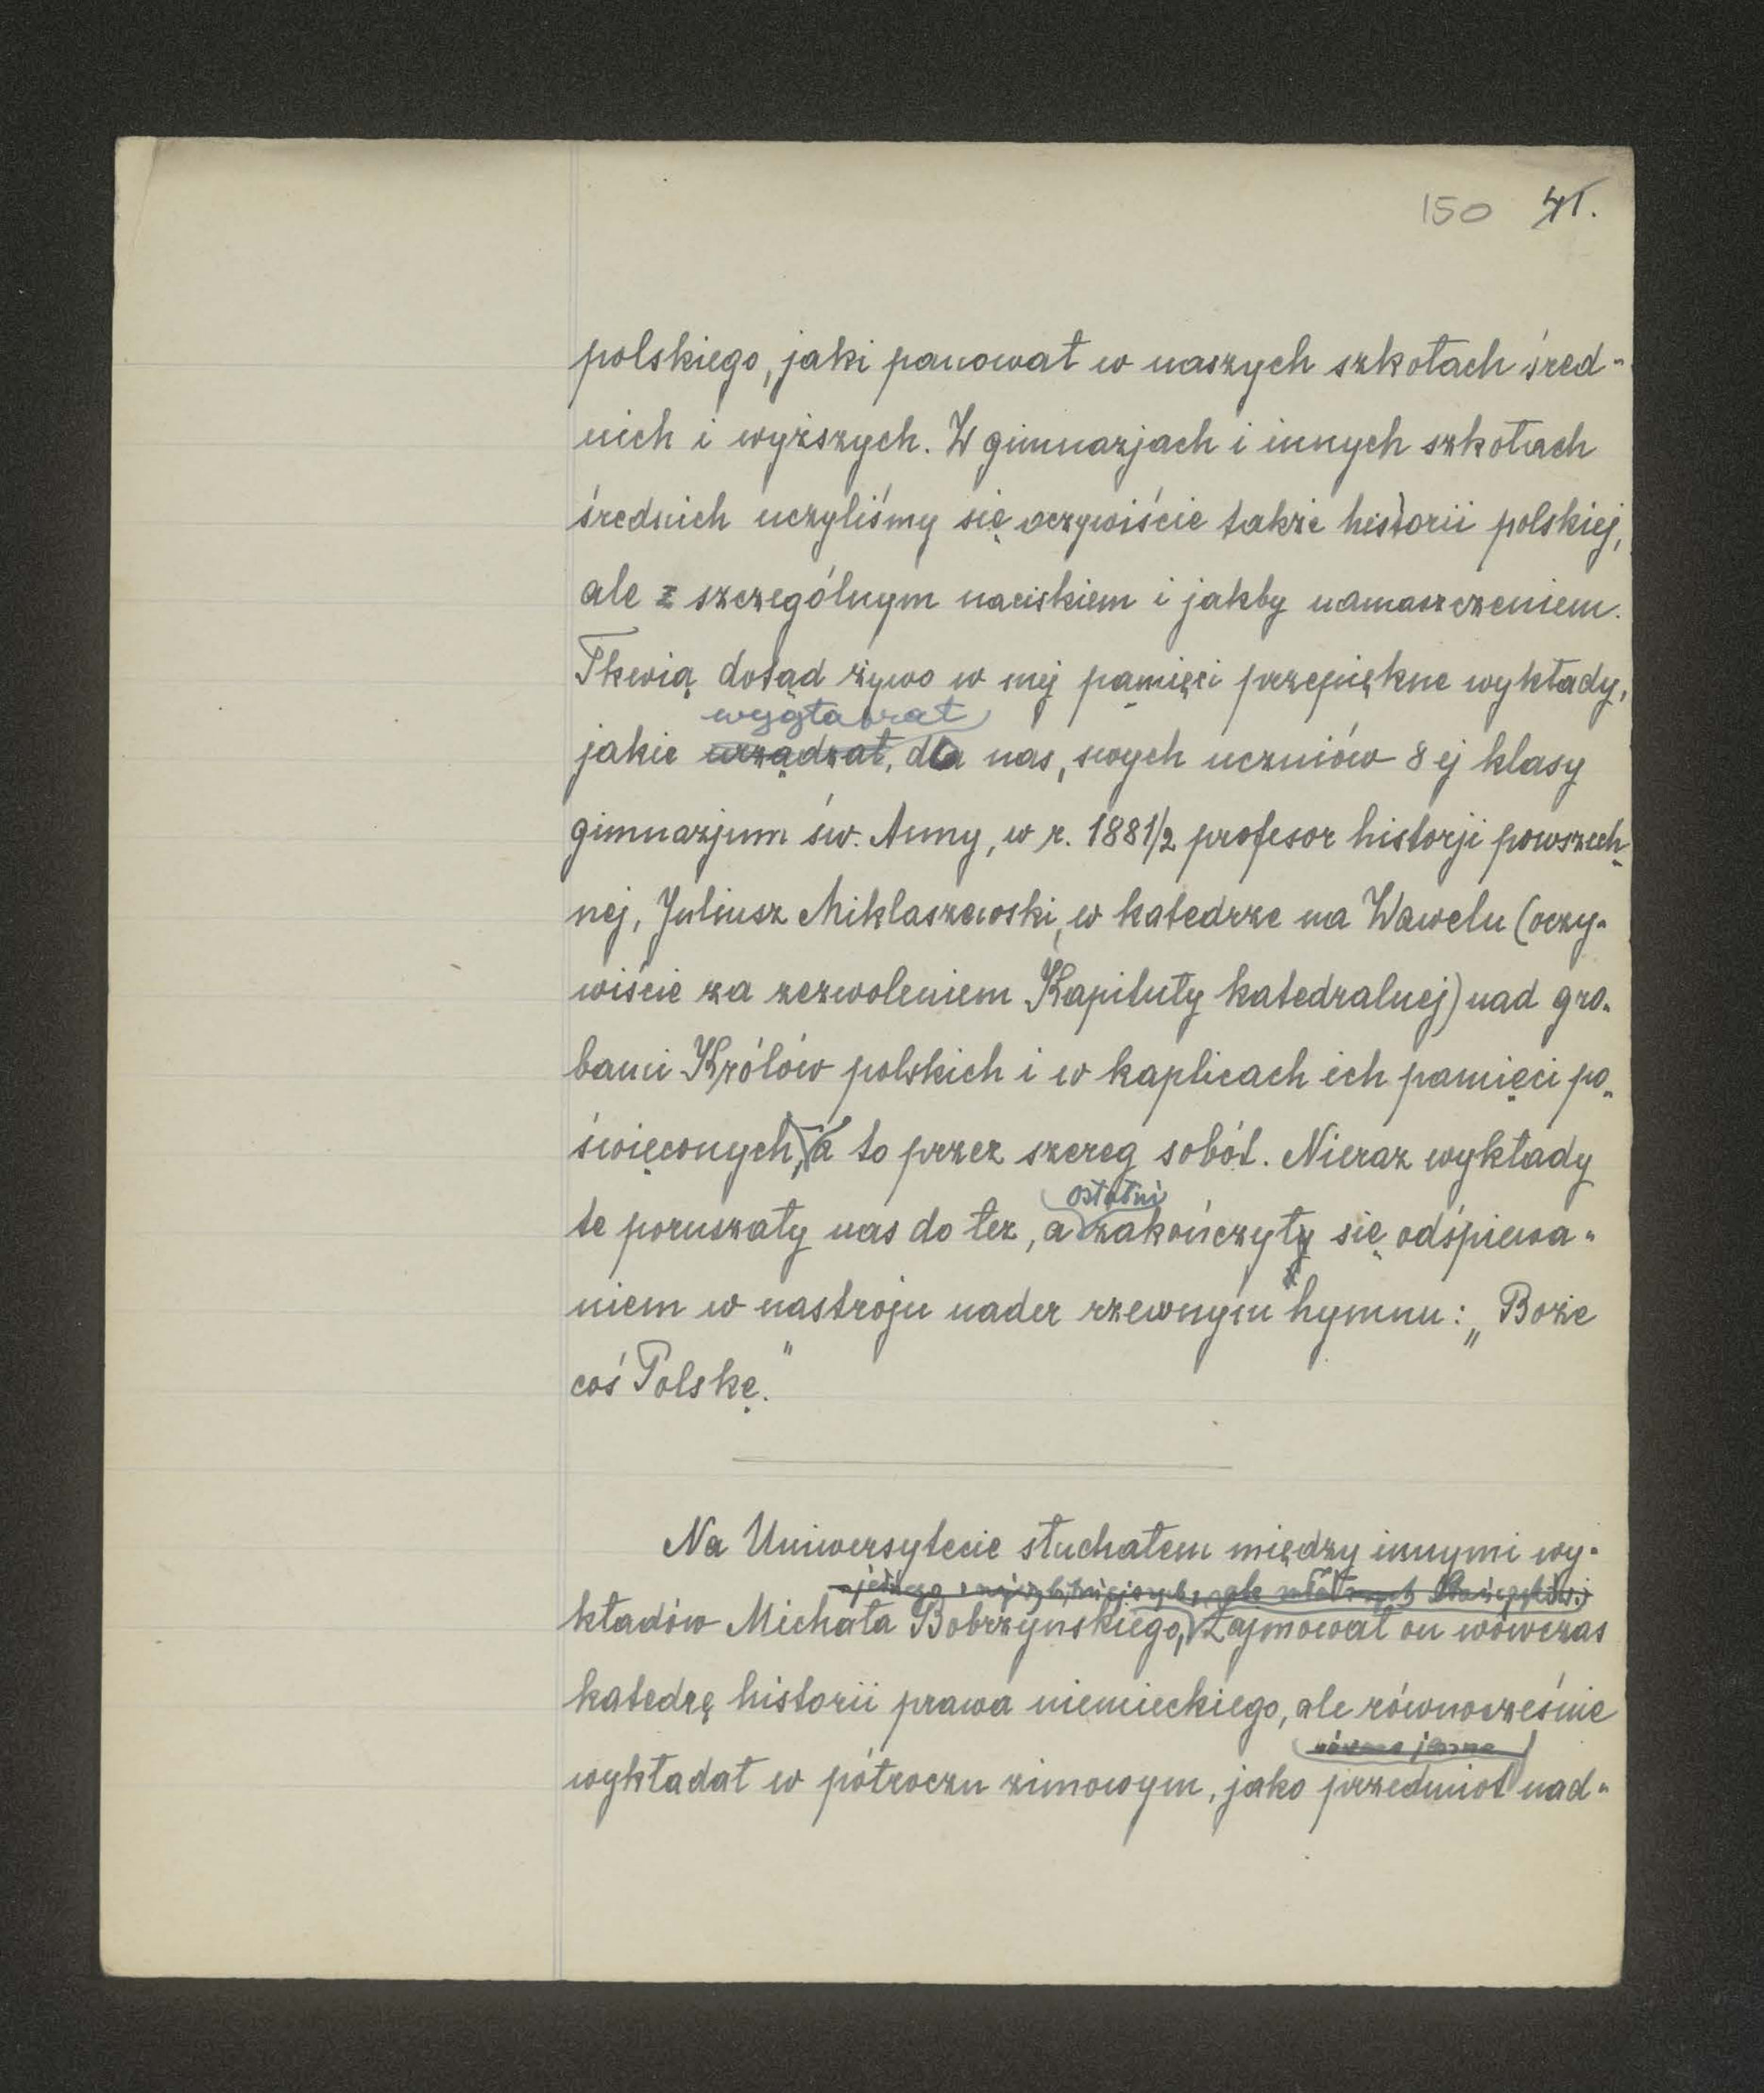 150 41.
polskiego, jaki panował w naszych szkołach śred-
nich i wyższych. W gimnazjach i innych szkołach
średnich uczyliśmy się oczywiście także historii polskiej,
ale z szczególnym naciskiem i jakby namaszczeniem.
Tkwią dotąd żywo w mej pamięci przepiękne wykłady,
wygłaszał
jakie urządzał, dla nas, swych uczniów 8 ej klasy
gimnazjum św. Anny, w r. 1881/2 profesor historji powszech-
nej, Juliusz Miklaszewski, w katedrze na Wawelu (oczy-
wiście za zezwoleniem Kapituły katedralnej) nad gro-
bami Królów polskich i w kaplicach ich pamięci po-
święconych, a to przez szereg sobót. Nieraz wykłady
ostatni
te poruszały nas do łez, a zakończyły się odśpiewa-
niem w nastroju nader rzewnym hymnu: „Boże
coś Polskę."
Na Uniwersytecie słuchałem między innymi wy-
jednego z najwybitniejszych, ale
kładów Michała Bobrzyńskiego, Zajmował on wówczas
katedrę historii prawa niemieckiego, ale równocześnie
wykładał w półroczu zimowym, jako przedmiot nad-